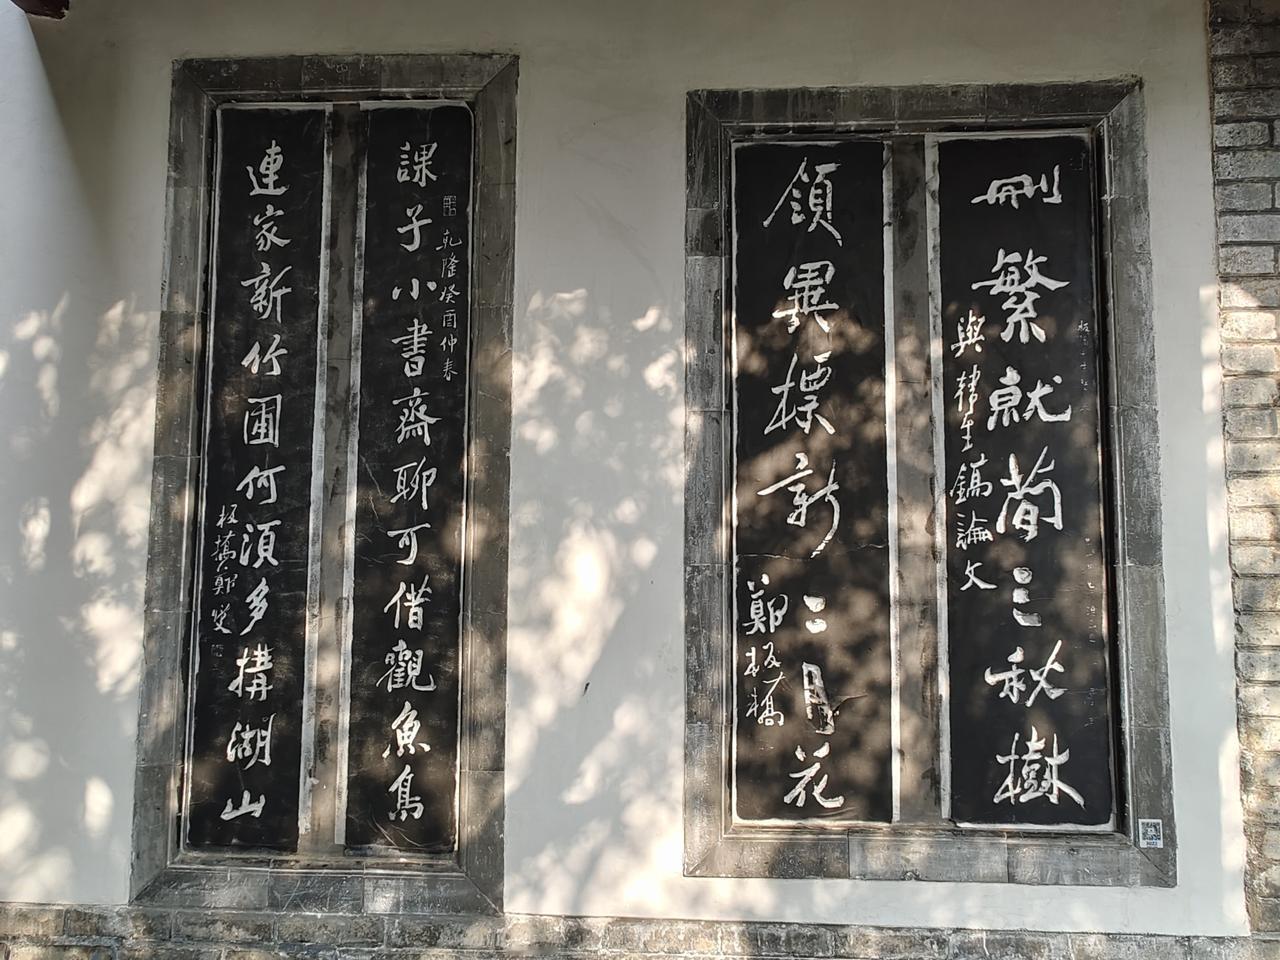 刪繁就簡三秋樹
與韓生鎬論文
領異標新二月花
鄭板橋
乾隆癸酉仲春
課子小書齋聊可借觀魚鳥
連家新竹圃何須多構湖山
板橋鄭燮